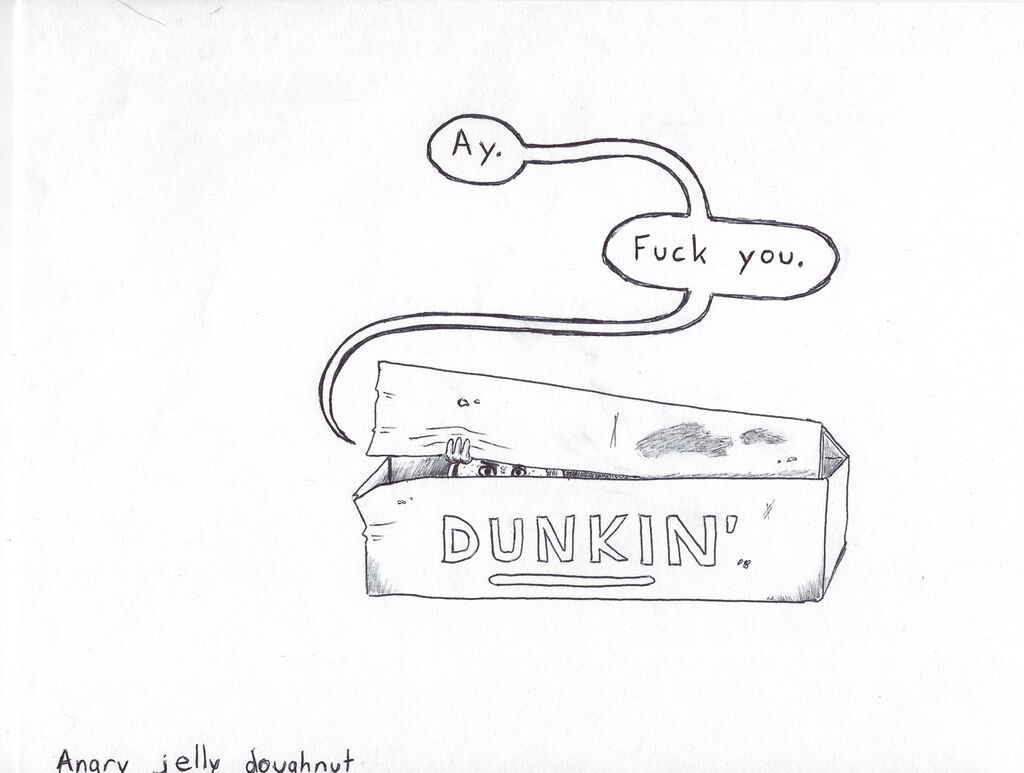 Ay.
Fuck you.
DUNKIN'
Angry jelly doughnut